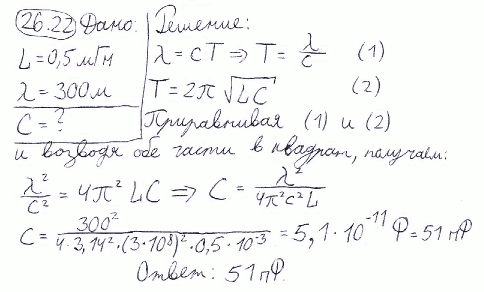 26.22 Дано:
L = 0,5 мГн
λ = 300 м
C = ?
Решение:
λ = cT ⇒ T = λ/c (1)
T = 2π √LC (2)
Приравнивая (1) и (2)
и возводя обе части в квадрат, получаем:
λ²/c² = 4π² LC ⇒ C = λ²/4π²c²L
C = 300²/4·3,14²·(3·10⁸)²·0,5·10⁻³ = 5,1·10⁻¹¹ Ф = 51 пФ
Ответ: 51 пФ.